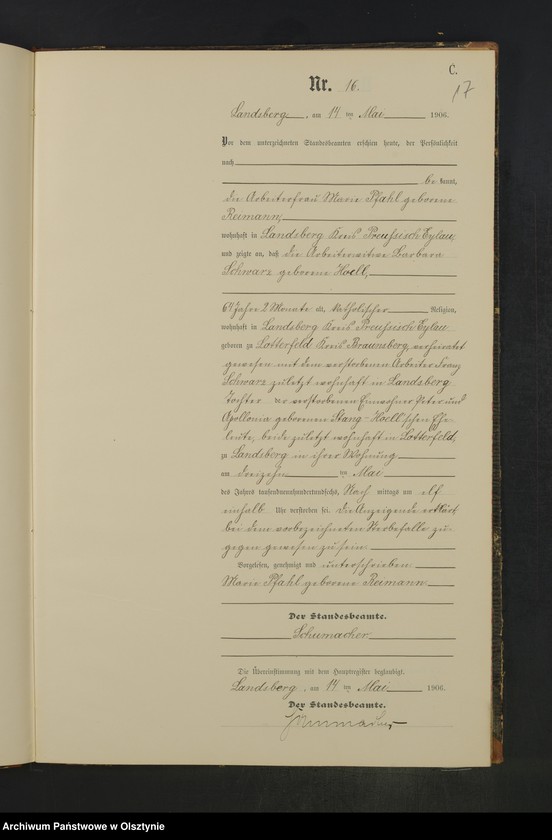 C.
17
Nr. 16.
Landsberg, am 14 ten Mai 1906.
Vor dem unterzeichneten Standesbeamten erschien heute, der Persönlichkeit
nach
bekannt,
die Arbeiterfrau Marie Pfahl geborene
Reimann,
wohnhaft in Landsberg Kreis Preußisch Eylau,
und zeigte an, daß die Arbeiterwitwe Barbara
Schwarz geborene Hoell,
64 Jahre 2 Monate alt, katholischer Religion,
wohnhaft in Landsberg Kreis Preußisch Eylau
geboren zu Lotterfeld Kreis Braunsberg, verheiratet
gewesen mit dem verstorbenen Arbeiter Franz
Schwarz zuletzt wohnhaft in Landsberg
Tochter der verstorbenen Einwohner Peter und
Apollonia geborenen Stang-Hoell'schen Ehe
leute, beide zuletzt wohnhaft in Lotterfeld,
zu Landsberg in ihrer Wohnung
am dreizehn ten Mai
des Jahres tausendneunhundertundsechs, Nach mittags um elf
einhalb Uhr verstorben sei. Die Anzeigende erklärt
bei dem vorbezeichneten Sterbefalle zu-
gegen gewesen zu sein.
Vorgelesen, genehmigt und unterschrieben
Marie Pfahl geborene Reimann
Der Standesbeamte.
Schumacher
Die Übereinstimmung mit dem Hauptregister beglaubigt.
Landsberg, am 14 ten Mai 1906.
Der Standesbeamte.
Schumacher
Archiwum Państwowe w Olsztynie